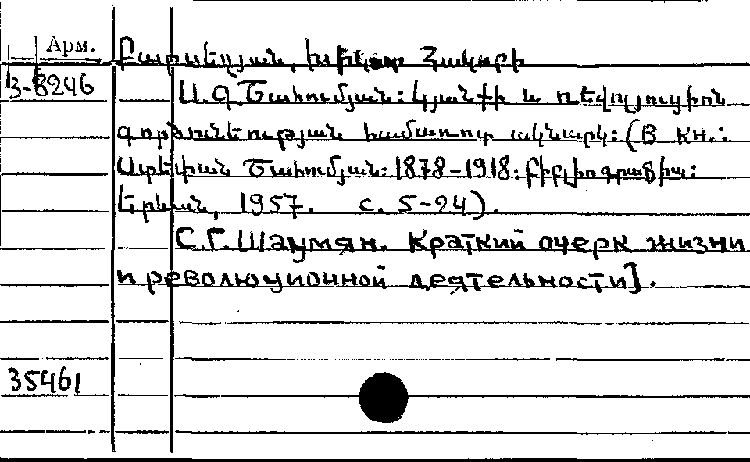 Арм.
Յակոբի
3-8246
Ս. Գ. Շահումյան: Կյանքի և ռեվոլյուցիոն
գործունեության համառոտ ակնարկ: (В кн.:
Ստեփան Շահումյան: 1878-1918: Բիբլիոգրաֆիա:
Երևան, 1957. с. 5-24).
С.Г. Шаумян. Краткий очерк жизни
и революционной деятельности].
35461